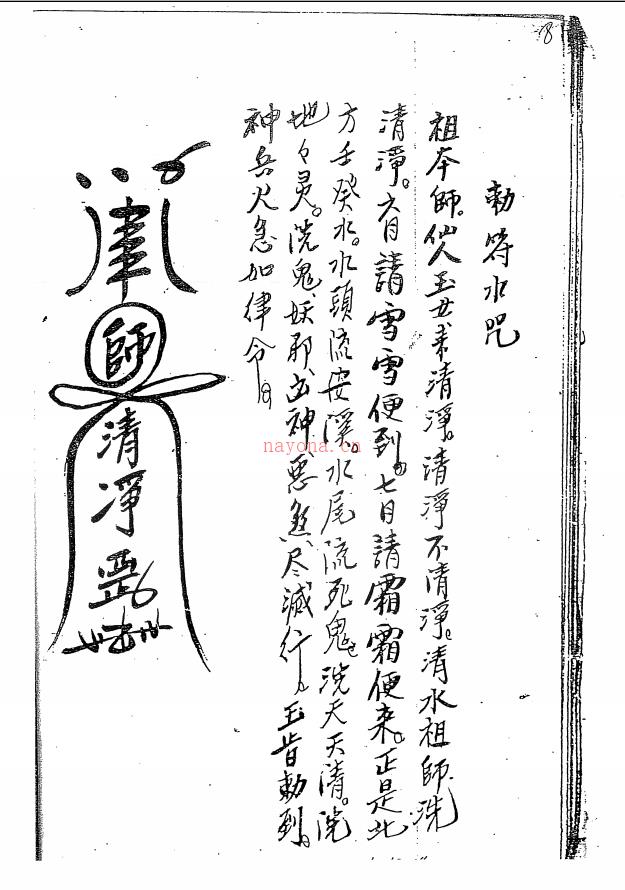 18
勅符水咒
祖本師。仙人玉女来清淨。清淨不清淨。清水祖師洗
清淨。六月請雪雪便到。七月請霜霜便来。正是北
方壬癸水。水頭流安溪。水尾流死鬼。洗天天清。洗
地々灵。洗鬼、妖邪、凶神、惡煞、尽滅行。玉旨勅到。
神兵火急如律令。
師
清淨
nayona.cn